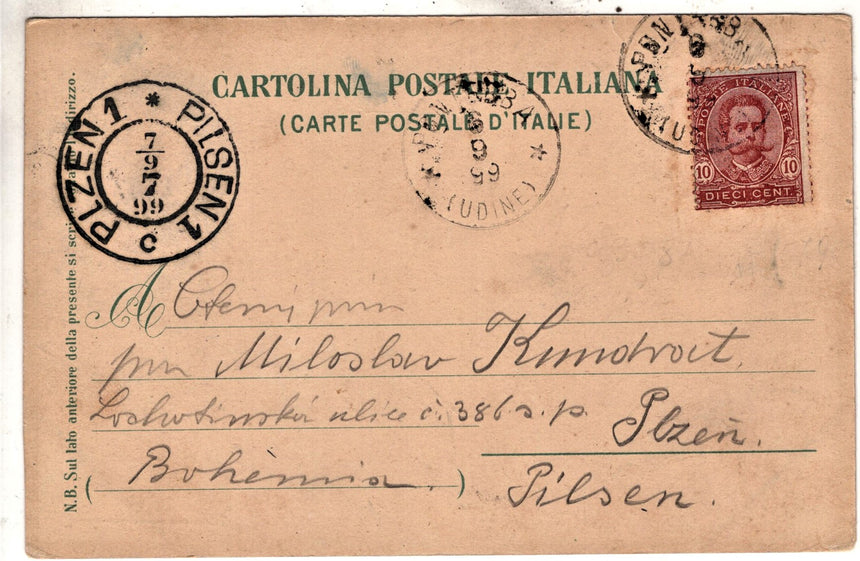 CARTOLINA POSTALE ITALIANA
(CARTE POSTALE D'ITALIE)
PLZEN 1 * PILSEN 1
7
9
7
99
PONTEBBA
6
9
99
* (UDINE) *
PONTEBBA
(UDINE)
POSTE ITALIANE
10 10
DIECI CENT.
N.B. Sul lato anteriore della presente si scrive
indirizzo.
A Ctěný pan
pan Miloslav Kundrat
Lochotínská ulice č. 386 s. p. Plzeň.
(Bohemia.) Pilsen.